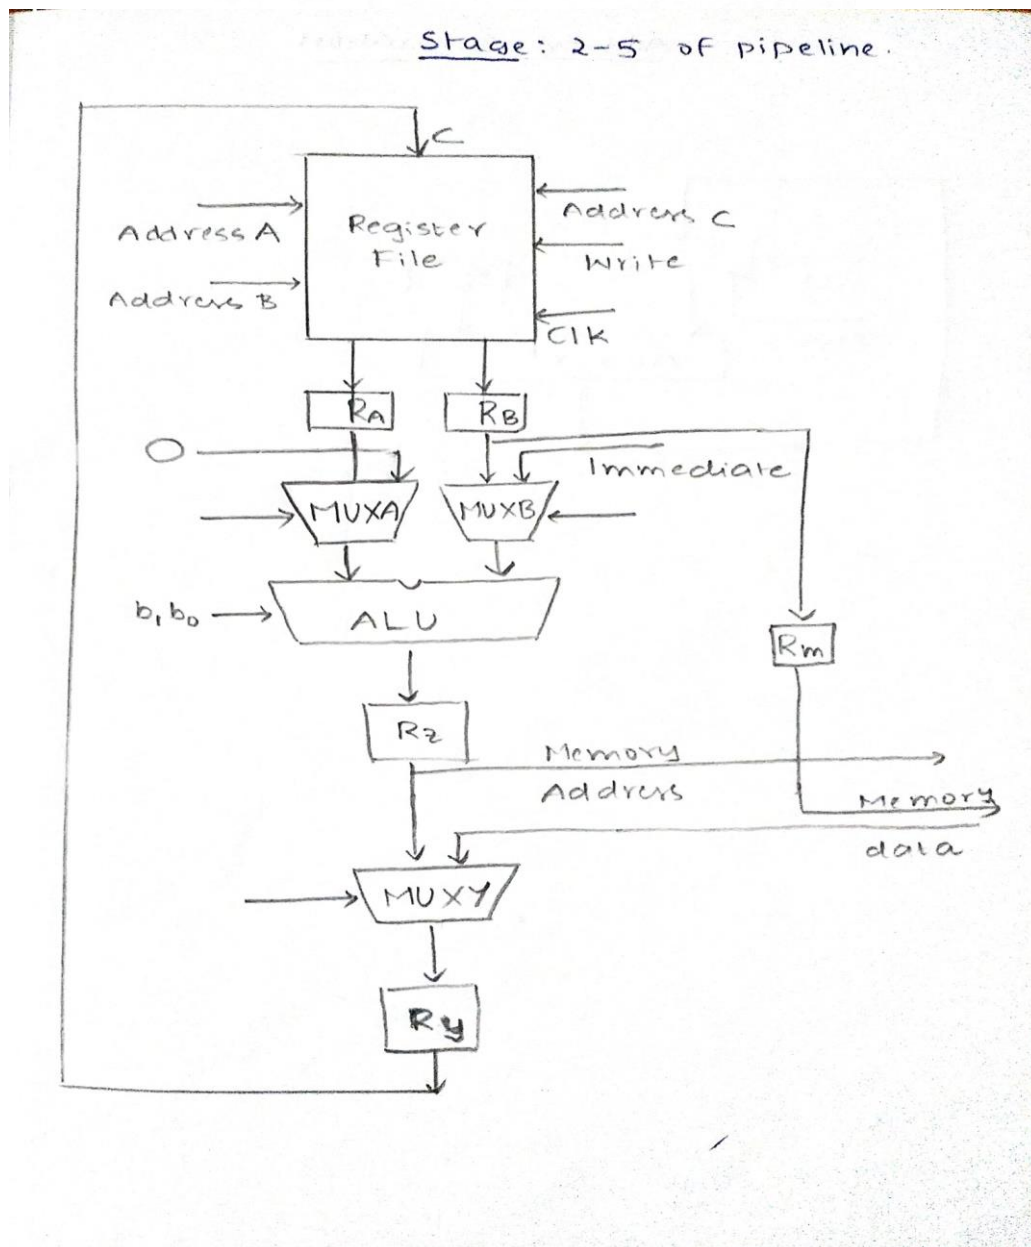 Stage: 2-5 of pipeline.
C
Address A
Address B
Register
File
Address C
Write
Clk
RA
RB
0
Immediate
MUXA
MUXB
b1 b0
ALU
Rm
Rz
Memory
Address
Memory
data
MUXY
Ry